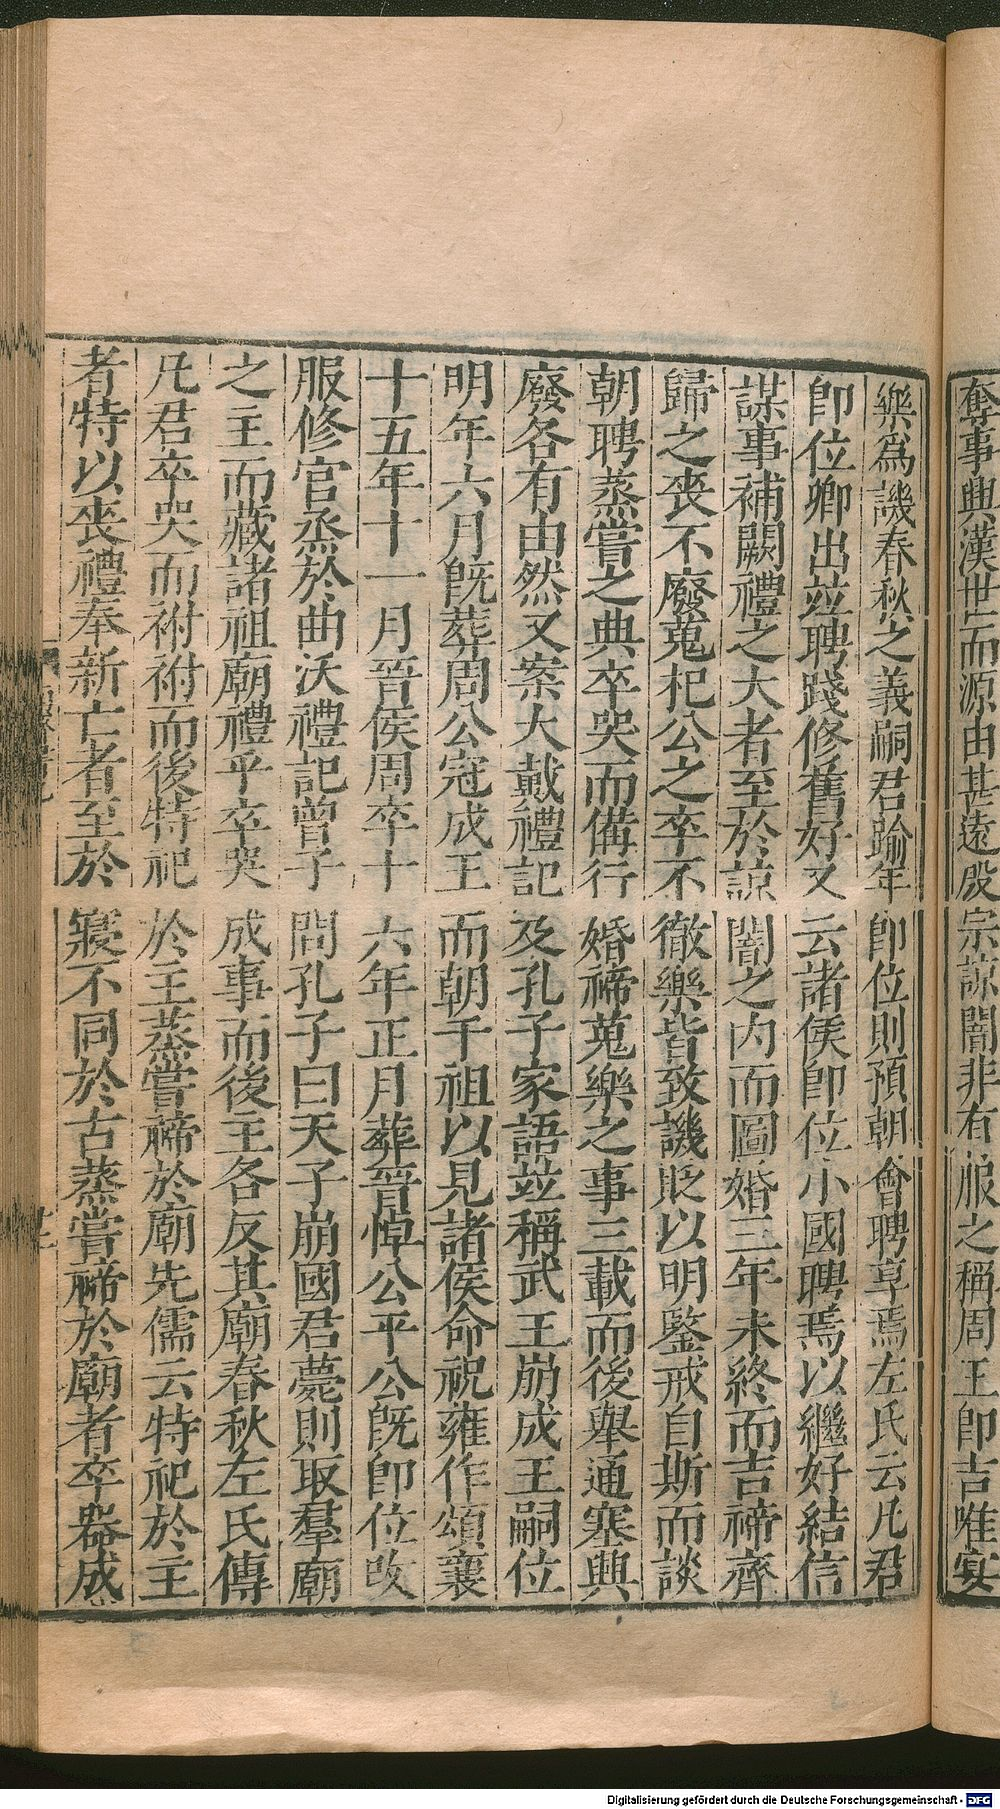 奪事興漢世而源由甚遠殷宗諒闇非有服之稱周王即吉唯宴
樂為譏春秋之義嗣君踰年即位則預朝會聘享焉左氏云凡君
即位卿出竝聘踐修舊好又云諸侯即位小國聘焉以繼好結信
謀事補闕禮之大者至於諒闇之内而圖婚三年未終而吉禘齊
歸之喪不廢蒐杞公之卒不徹樂皆致譏貶以明鑒戒自斯而談
朝聘蒸嘗之典卒哭而備行婚禘蒐樂之事三載而後舉通塞興
廢各有由然又案大戴禮記及孔子家語竝稱武王崩成王嗣位
明年六月既葬周公冠成王而朝于祖以見諸侯命祝雍作頌襄
十五年十一月晉侯周卒十六年正月葬晉悼公平公既即位改
服修官烝於曲沃禮記曾子問孔子曰天子崩國君薨則取羣廟
之主而藏諸祖廟禮乎卒哭成事而後主各反其廟春秋左氏傳
凡君卒哭而祔祔而後特祀於主蒸嘗禘於廟先儒云特祀於主
者特以喪禮奉新亡者至於寢不同於古蒸嘗禘於廟者卒哭成
Digitalisierung gefördert durch die Deutsche Forschungsgemeinschaft - DFG